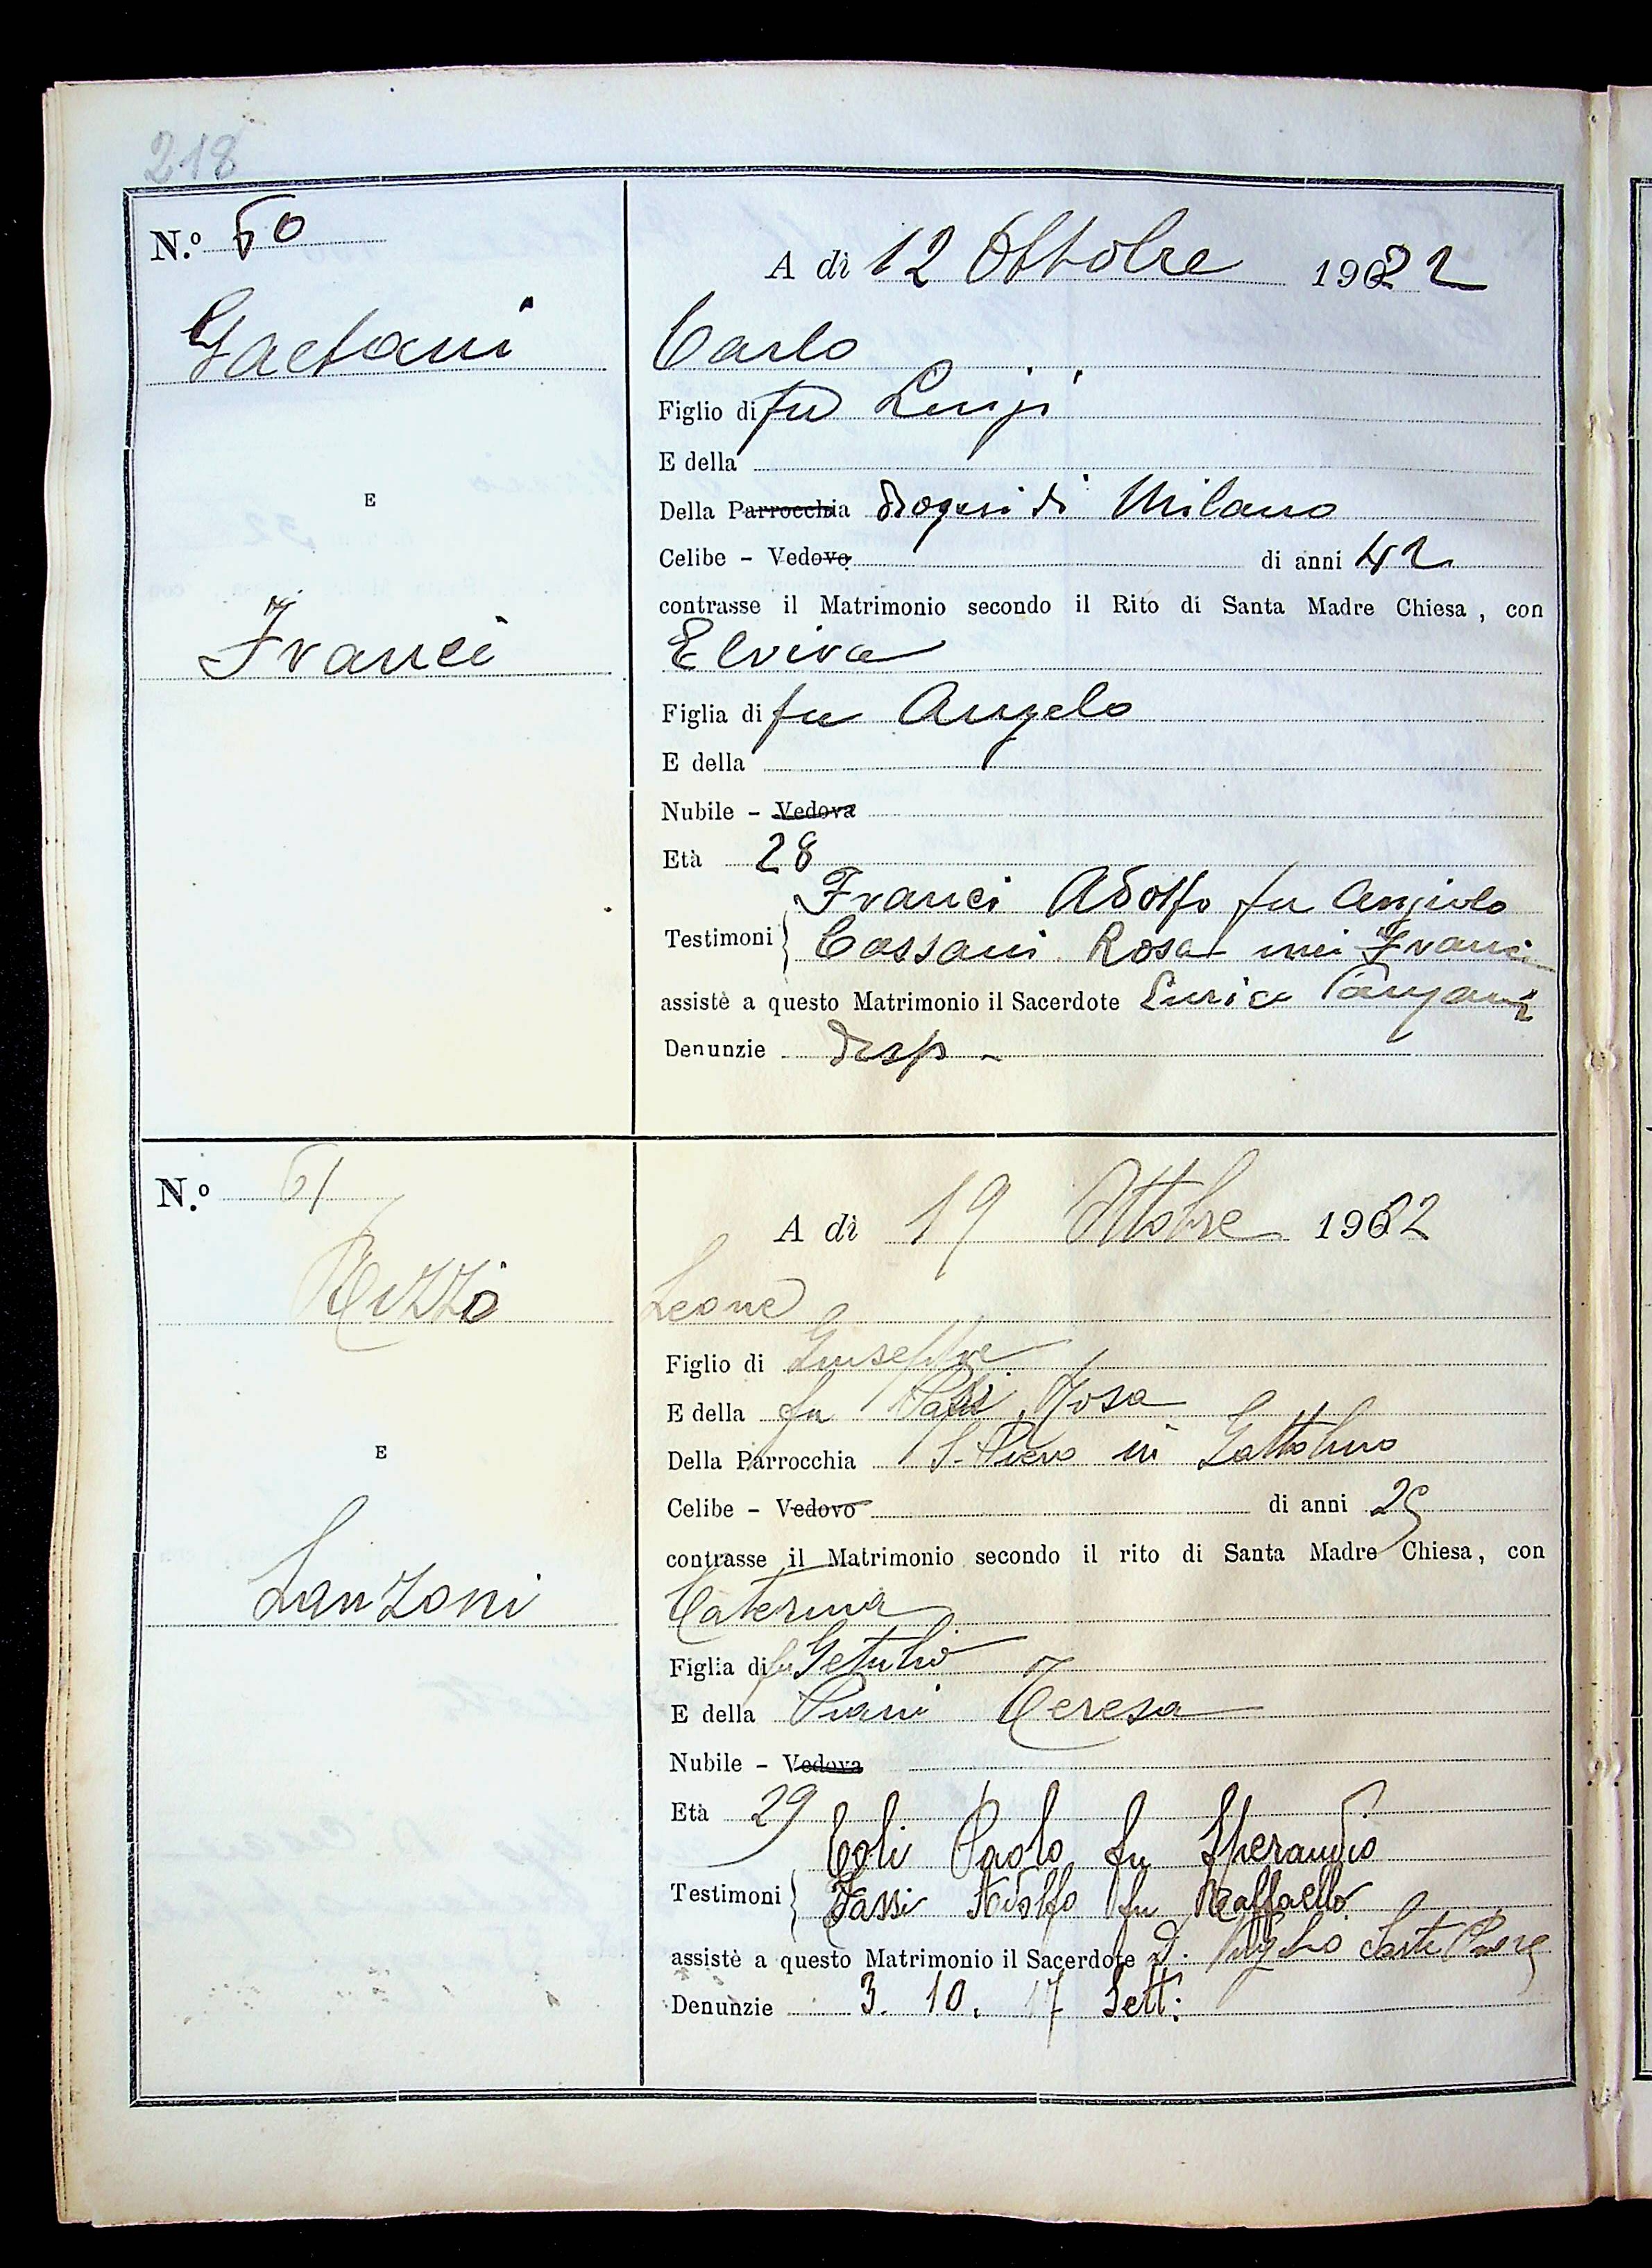 218
N.º 60
A dì 12 Ottobre 1922
Gaetani
Carlo
Figlio di fu Luigi
E della
Della Parrocchia diogesi di Milano
E
Celibe - Vedovo di anni 42
contrasse il Matrimonio secondo il Rito di Santa Madre Chiesa, con
Franci
Elvira
Figlia di fu Angelo
E della
Nubile - Vedova
Età 28
Franci Adolfo fu Angiolo
Testimoni Cassani Rosa nei Franci
assistè a questo Matrimonio il Sacerdote
Denunzie disp -
N.º 61
A dì 19 Ottobre 1922
Rizzo
Leone
Figlio di Giuseppe
E della fu Rosa
Della Parrocchia S. Piero in Gattolino
E
Celibe - Vedovo di anni 25
contrasse il Matrimonio secondo il rito di Santa Madre Chiesa, con
Lanzoni
Caterina
Figlia di fu Getulio
E della Piani Teresa
Nubile - Vedova
Età 29
Coli Paolo fu Sperandio
Testimoni Fassi Adolfo fu Raffaello
assistè a questo Matrimonio il Sacerdote D.
Denunzie 3. 10. 17 Sett.